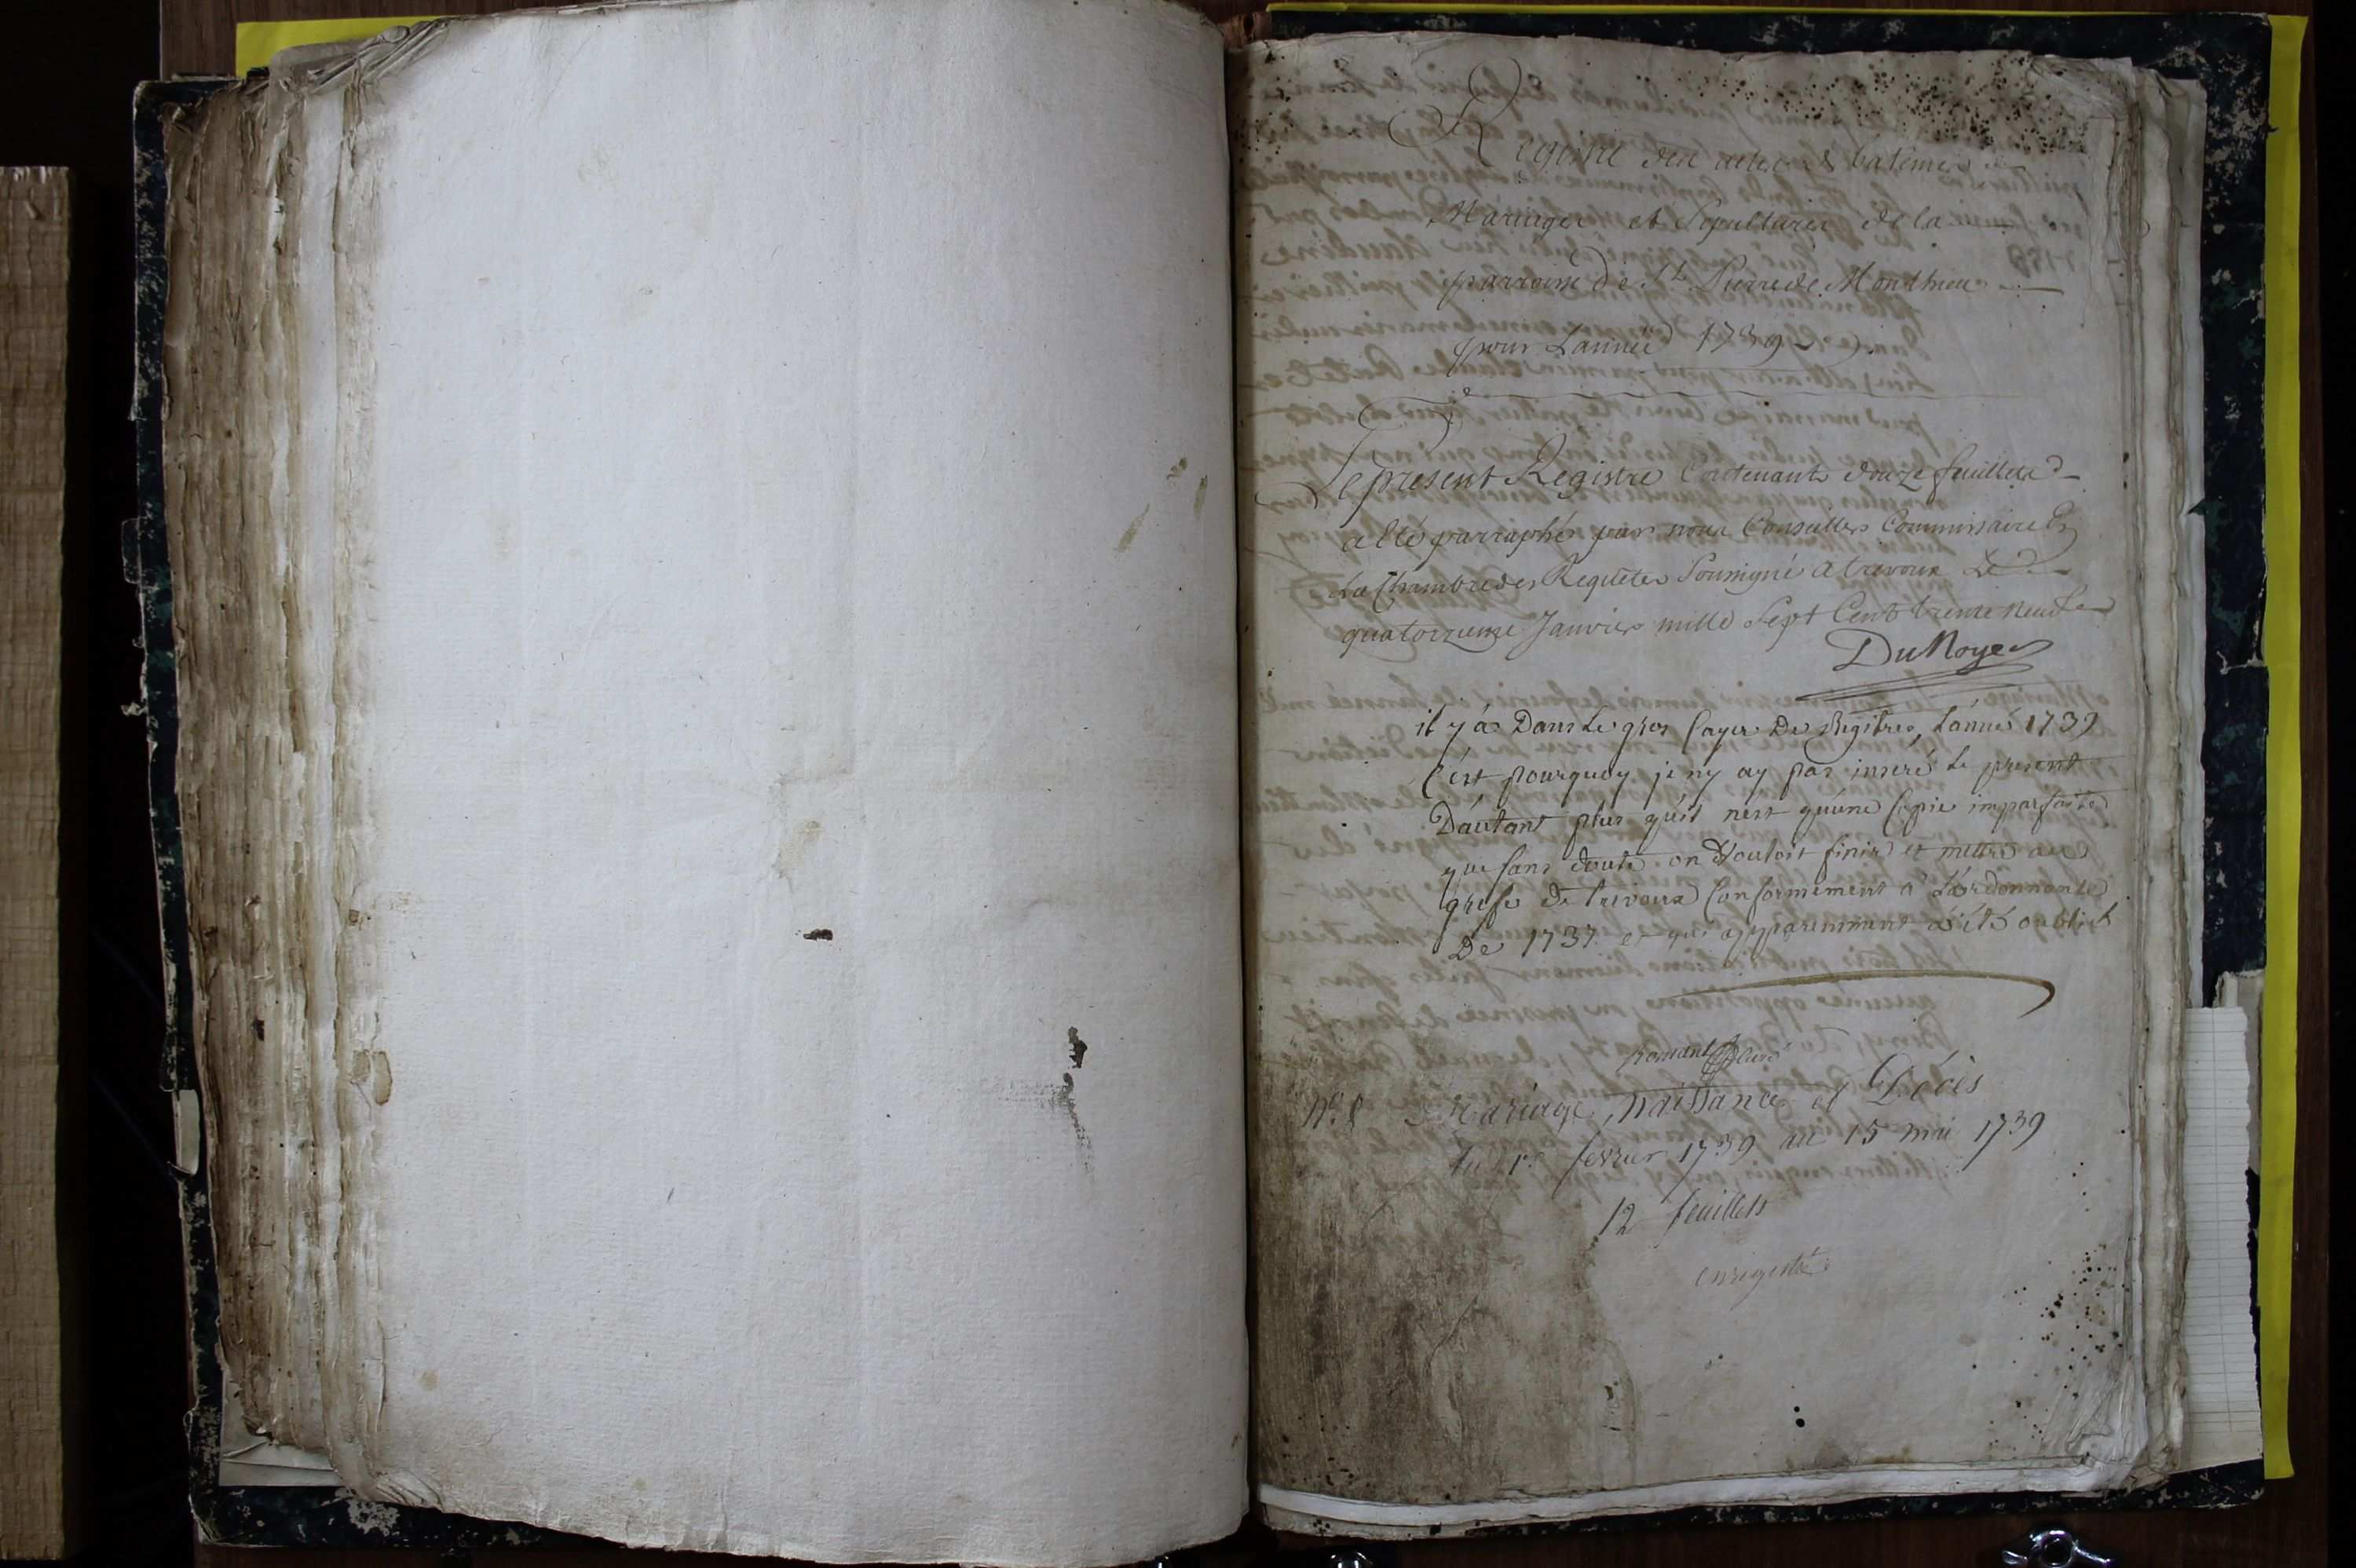 Registre des actes de batêmes
Mariages et Sepultures de la
parroisse de St Pierre de Monthieu
pour Lannée 1739
Le present Registre Contenant douze feuillets
a été parraphé par nous Conseiller Commissaire En
La Chambre des Requêtes Soussigné a trevoux Le
quatorzieme Janvier mille Sept Cent trente neuf
DuNoyer
il y â Dans Le gros Cayer De Régitres, L'année 1739
C'est pourquoy je ny ay pas inseré le present
D'autant plus qu'il n'est qu'une Copie imparfaite
que sans doute on Vouloit finir et mettre au
grefe De trevoux Conformément à L'ordonnance
De 1737 et qui apparemment a été oublié
curé
N° 8 Mariage, naissance et Décès
du 1er fevrier 1739 au 15 mai 1739
12 feuillets
enregistré